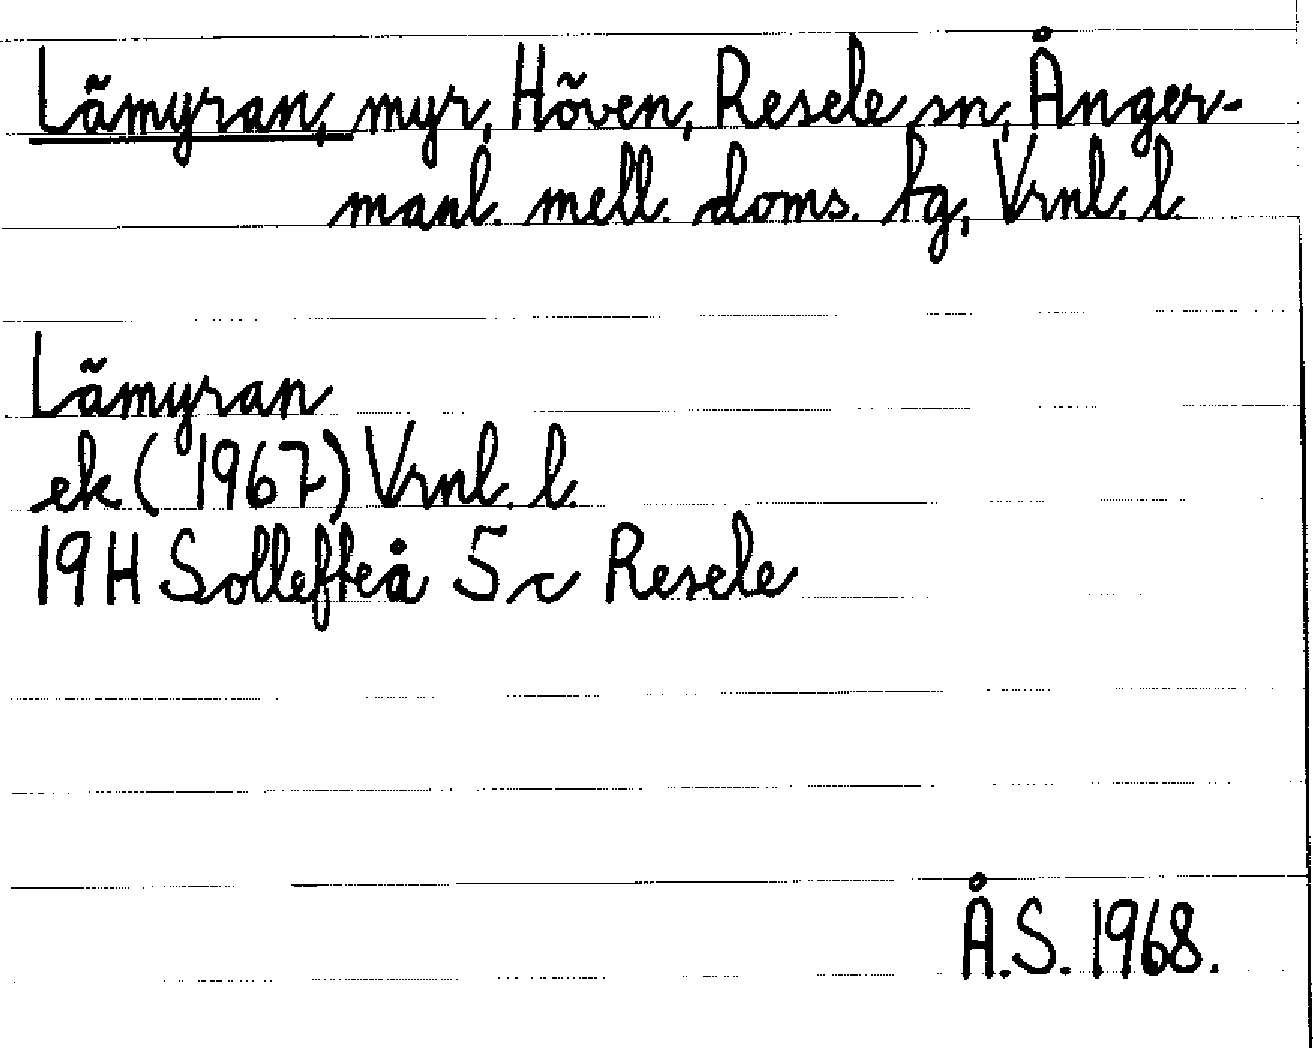 Lämyran, myr, Höven, Resele sn, Ånger-
manl. mell. doms. tg, Vrnl. l.
Lämyran
ek (1967) Vrnl. l.
19H Sollefteå 5c Resele
Å.S. 1968.